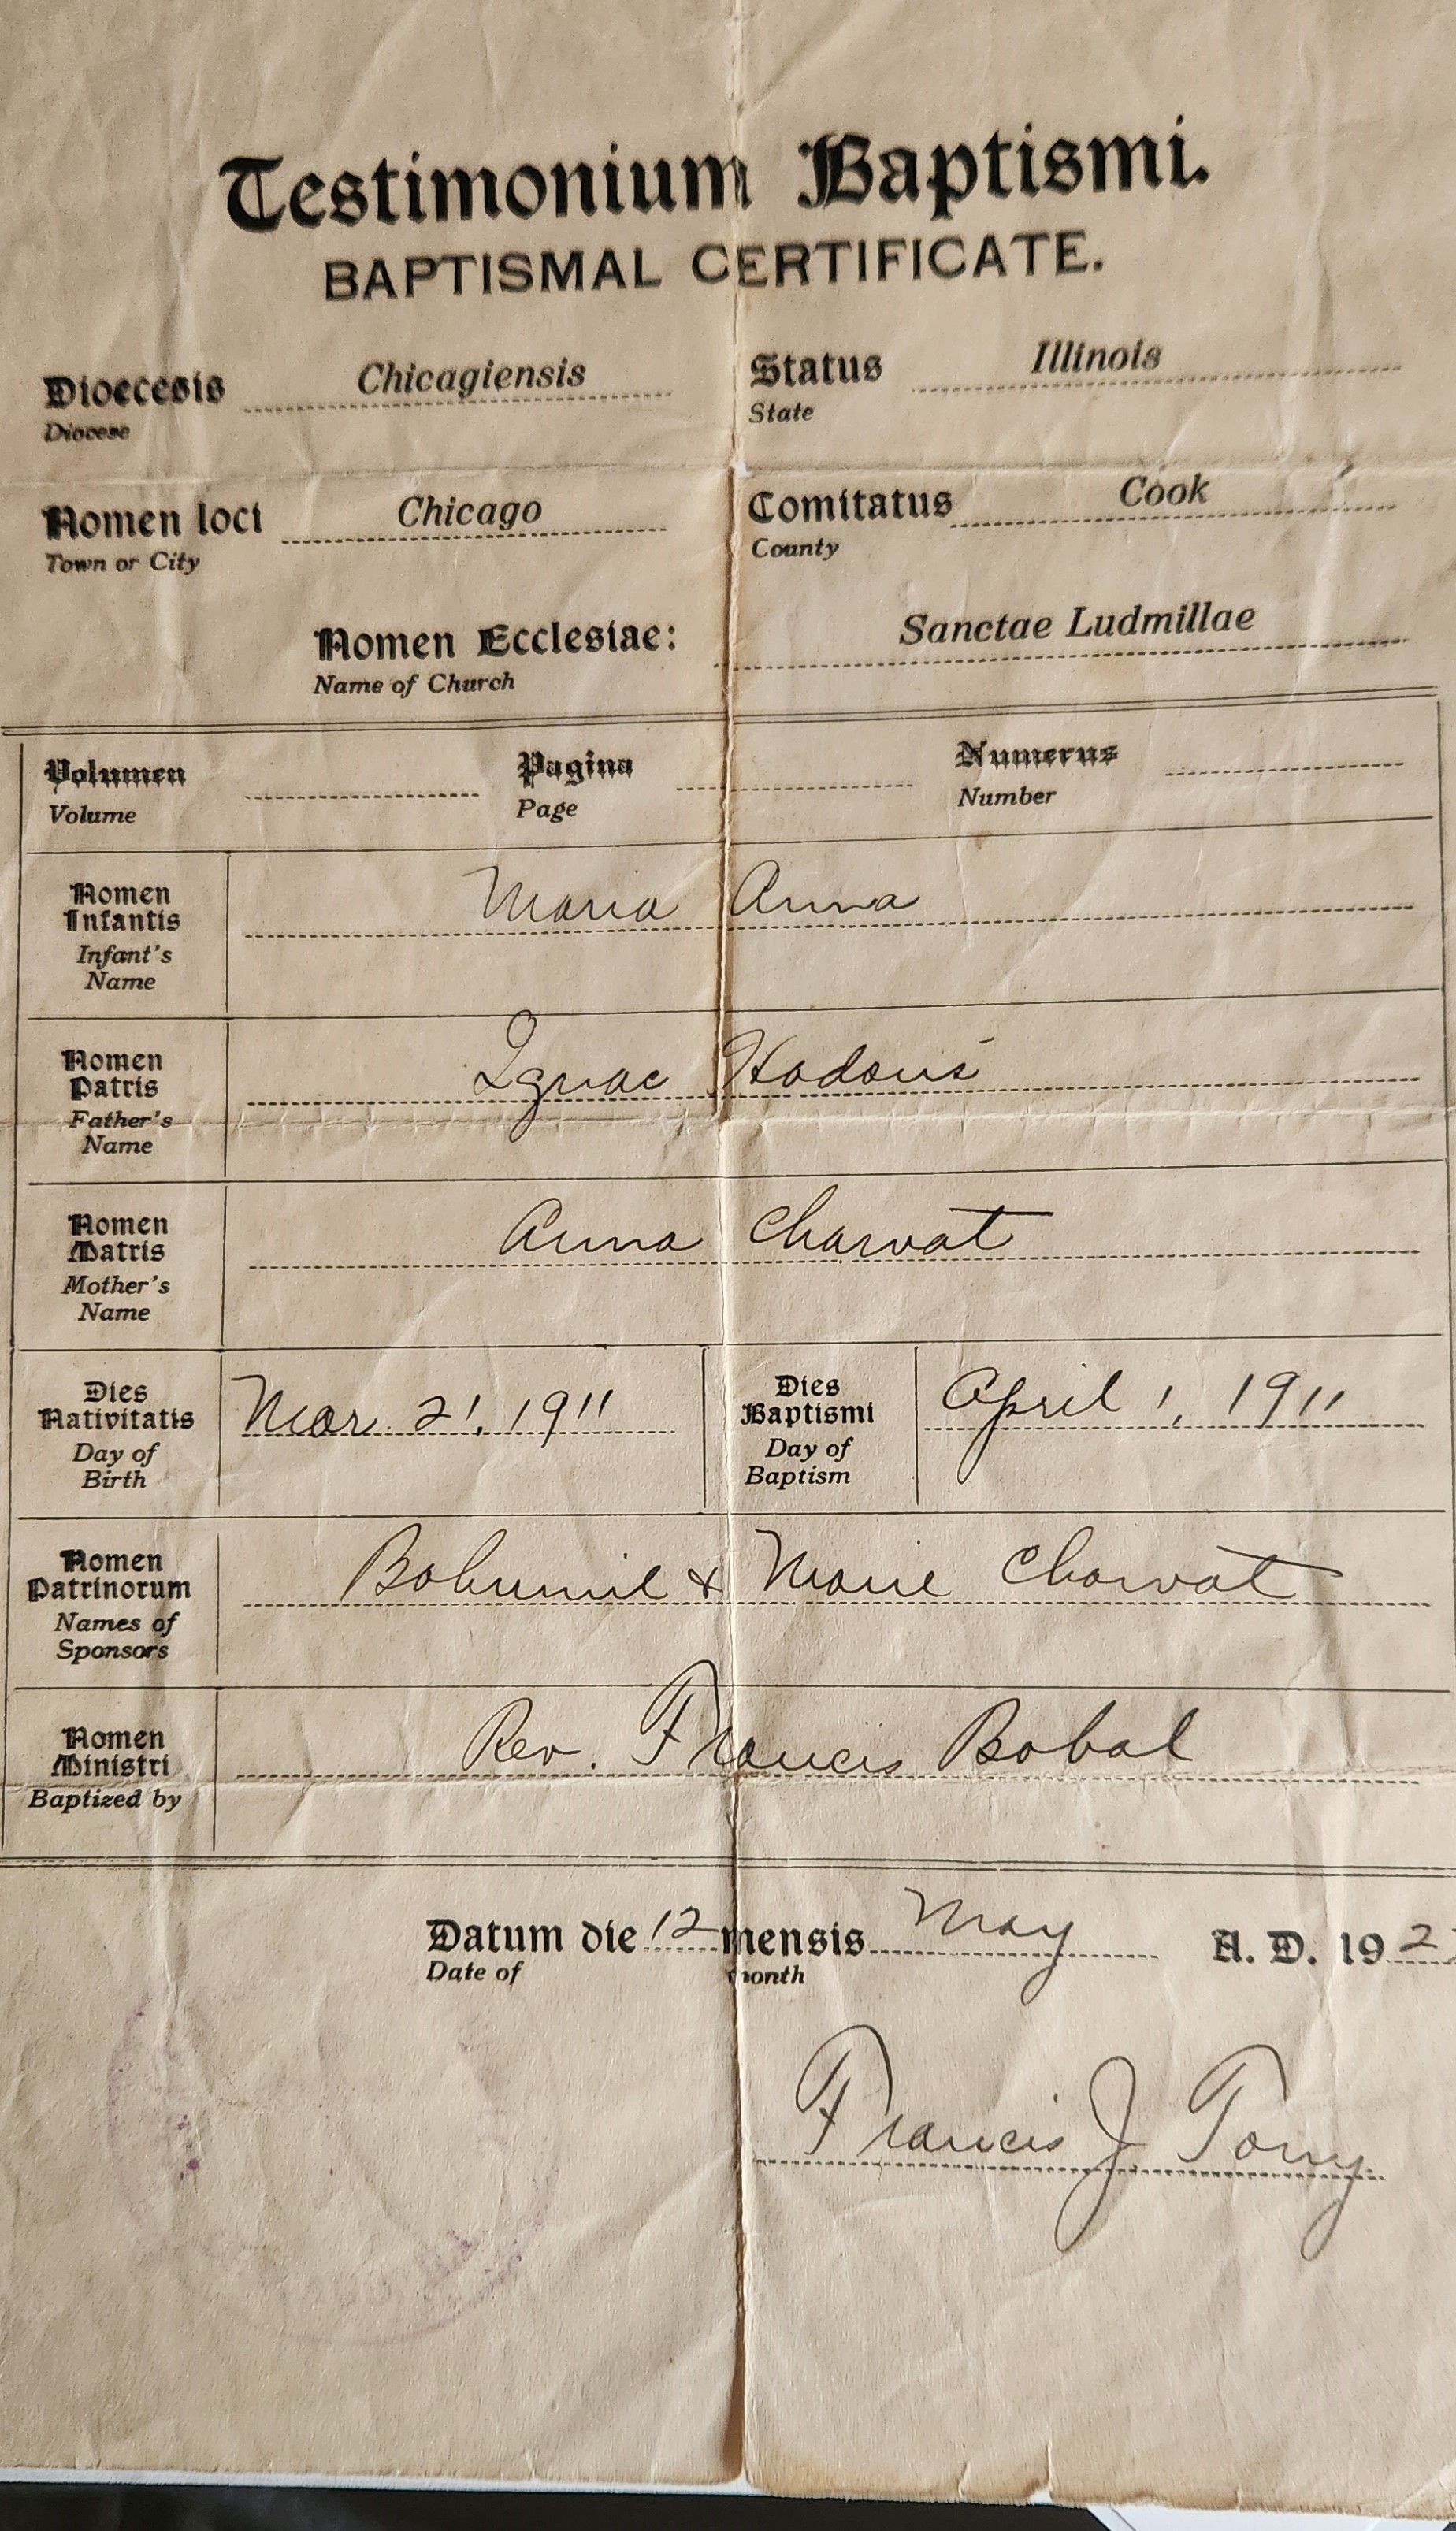 Testimonium Baptismi.
BAPTISMAL CERTIFICATE.
Dioecesis Chicagiensis Status Illinois
Diocese State
Nomen loci Chicago Comitatus Cook
Town or City County
Nomen Ecclesiae: Sanctae Ludmillae
Name of Church
Volumen Pagina Numerus
Volume Page Number
Nomen Infantis Maria Anna
Infant's Name
Nomen Patris Ignac
Father's Name
Nomen Matris Anna Charvat
Mother's Name
Dies Nativitatis Mar. 21, 1911 Dies Baptismi April 1, 1911
Day of Birth Day of Baptism
Nomen Patrinorum Bohumil & Marie Charvat
Names of Sponsors
Nomen Ministri Rev. Francis Bobal
Baptized by
Datum die 12 mensis May A. D. 192
Date of month
Francis J.